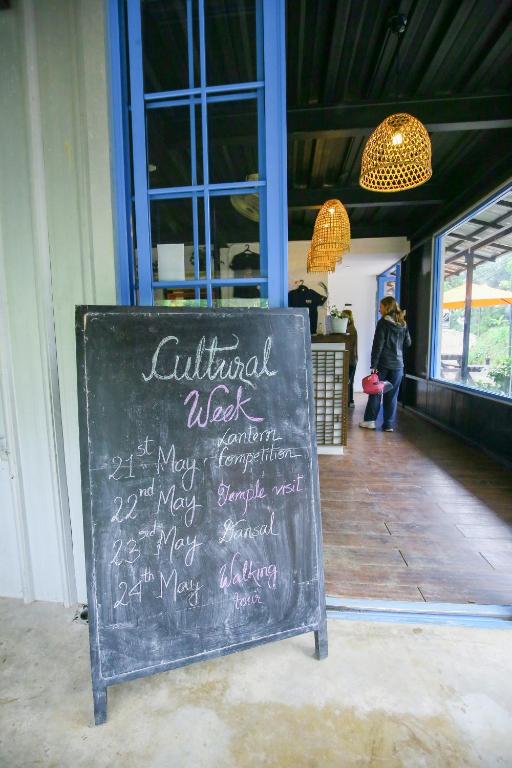 Cultural
Week
21st May Lantern
Competition
22nd May Temple visit
23rd May Dansal
24th May Walking
tour